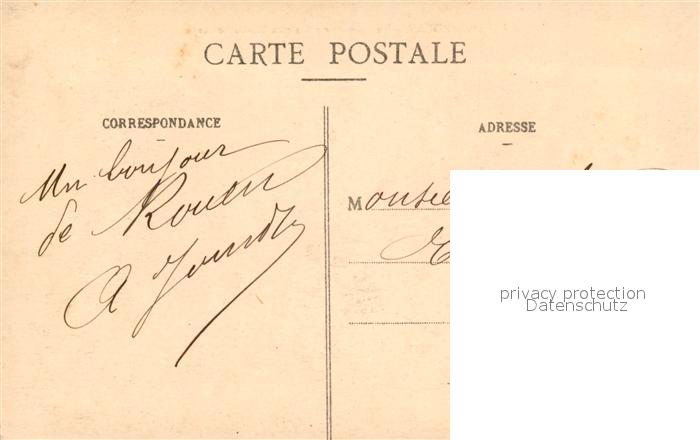 CARTE POSTALE
CORRESPONDANCE
ADRESSE
Un bonjour
de Rouen
A
Monsie
privacy protection
Datenschutz